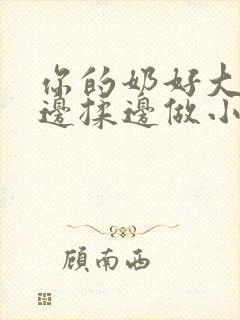 你的奶好大
邊揉邊做小
顧南西